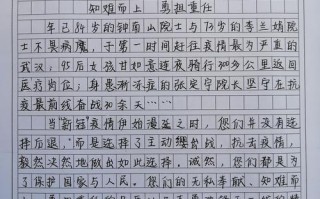 知难而上 勇担重任
年已84岁的钟南山院士与73岁的李兰娟院
士不畏病魔，于第一时间赶往疫情最为严重的
武汉；95后女孩甘如意连夜骑行300多公里返回
医疗岗位；身患渐冻症的张定宇院长坚守在抗
疫最前线奋战30余天……
当"新冠"疫情伊始漫延之时，您们并没有选
择后退，而是选择了主动 战，抗击疫情，
毅然决然地做出如此选择，诚然，您们都是为
了保护国家与人民。您们的无私奉献、知难而